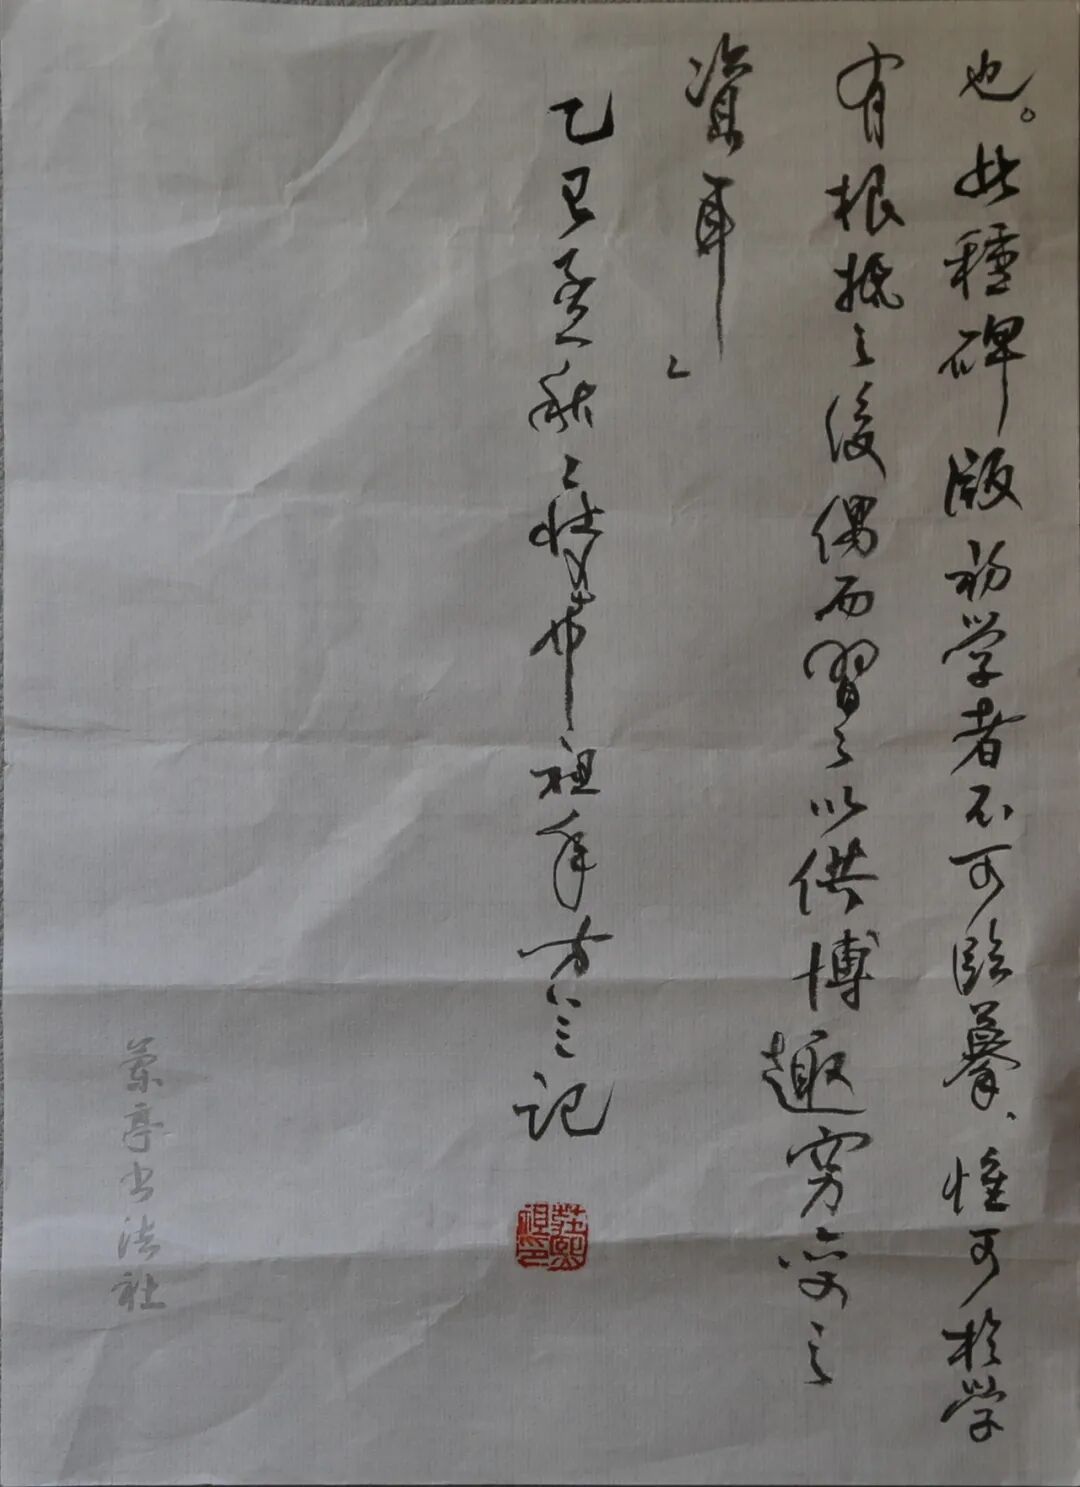 也。此種碑版初学者不可臨摹、惟可於学
有根抵之後偶而習之以供博趣窮变之
資耳」
乙巳孟秋之 希祖 方 記
蘭亭书法社
莊熙祖印